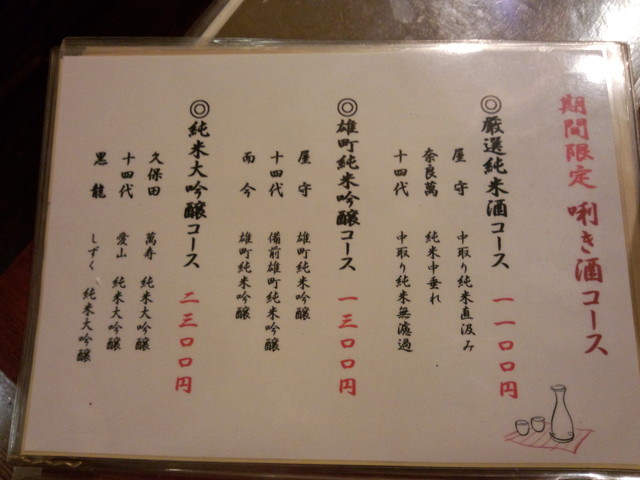 期間限定 唎き酒コース
◎厳選純米酒コース 一一〇〇円
屋守 中取り純米直汲み
奈良萬 純米中垂れ
十四代 中取り純米無濾過
◎雄町純米吟醸コース 一三〇〇円
屋守 雄町純米吟醸
十四代 備前雄町純米吟醸
而今 雄町純米吟醸
◎純米大吟醸コース 二三〇〇円
久保田 萬寿 純米大吟醸
十四代 愛山 純米大吟醸
黒龍 しずく 純米大吟醸